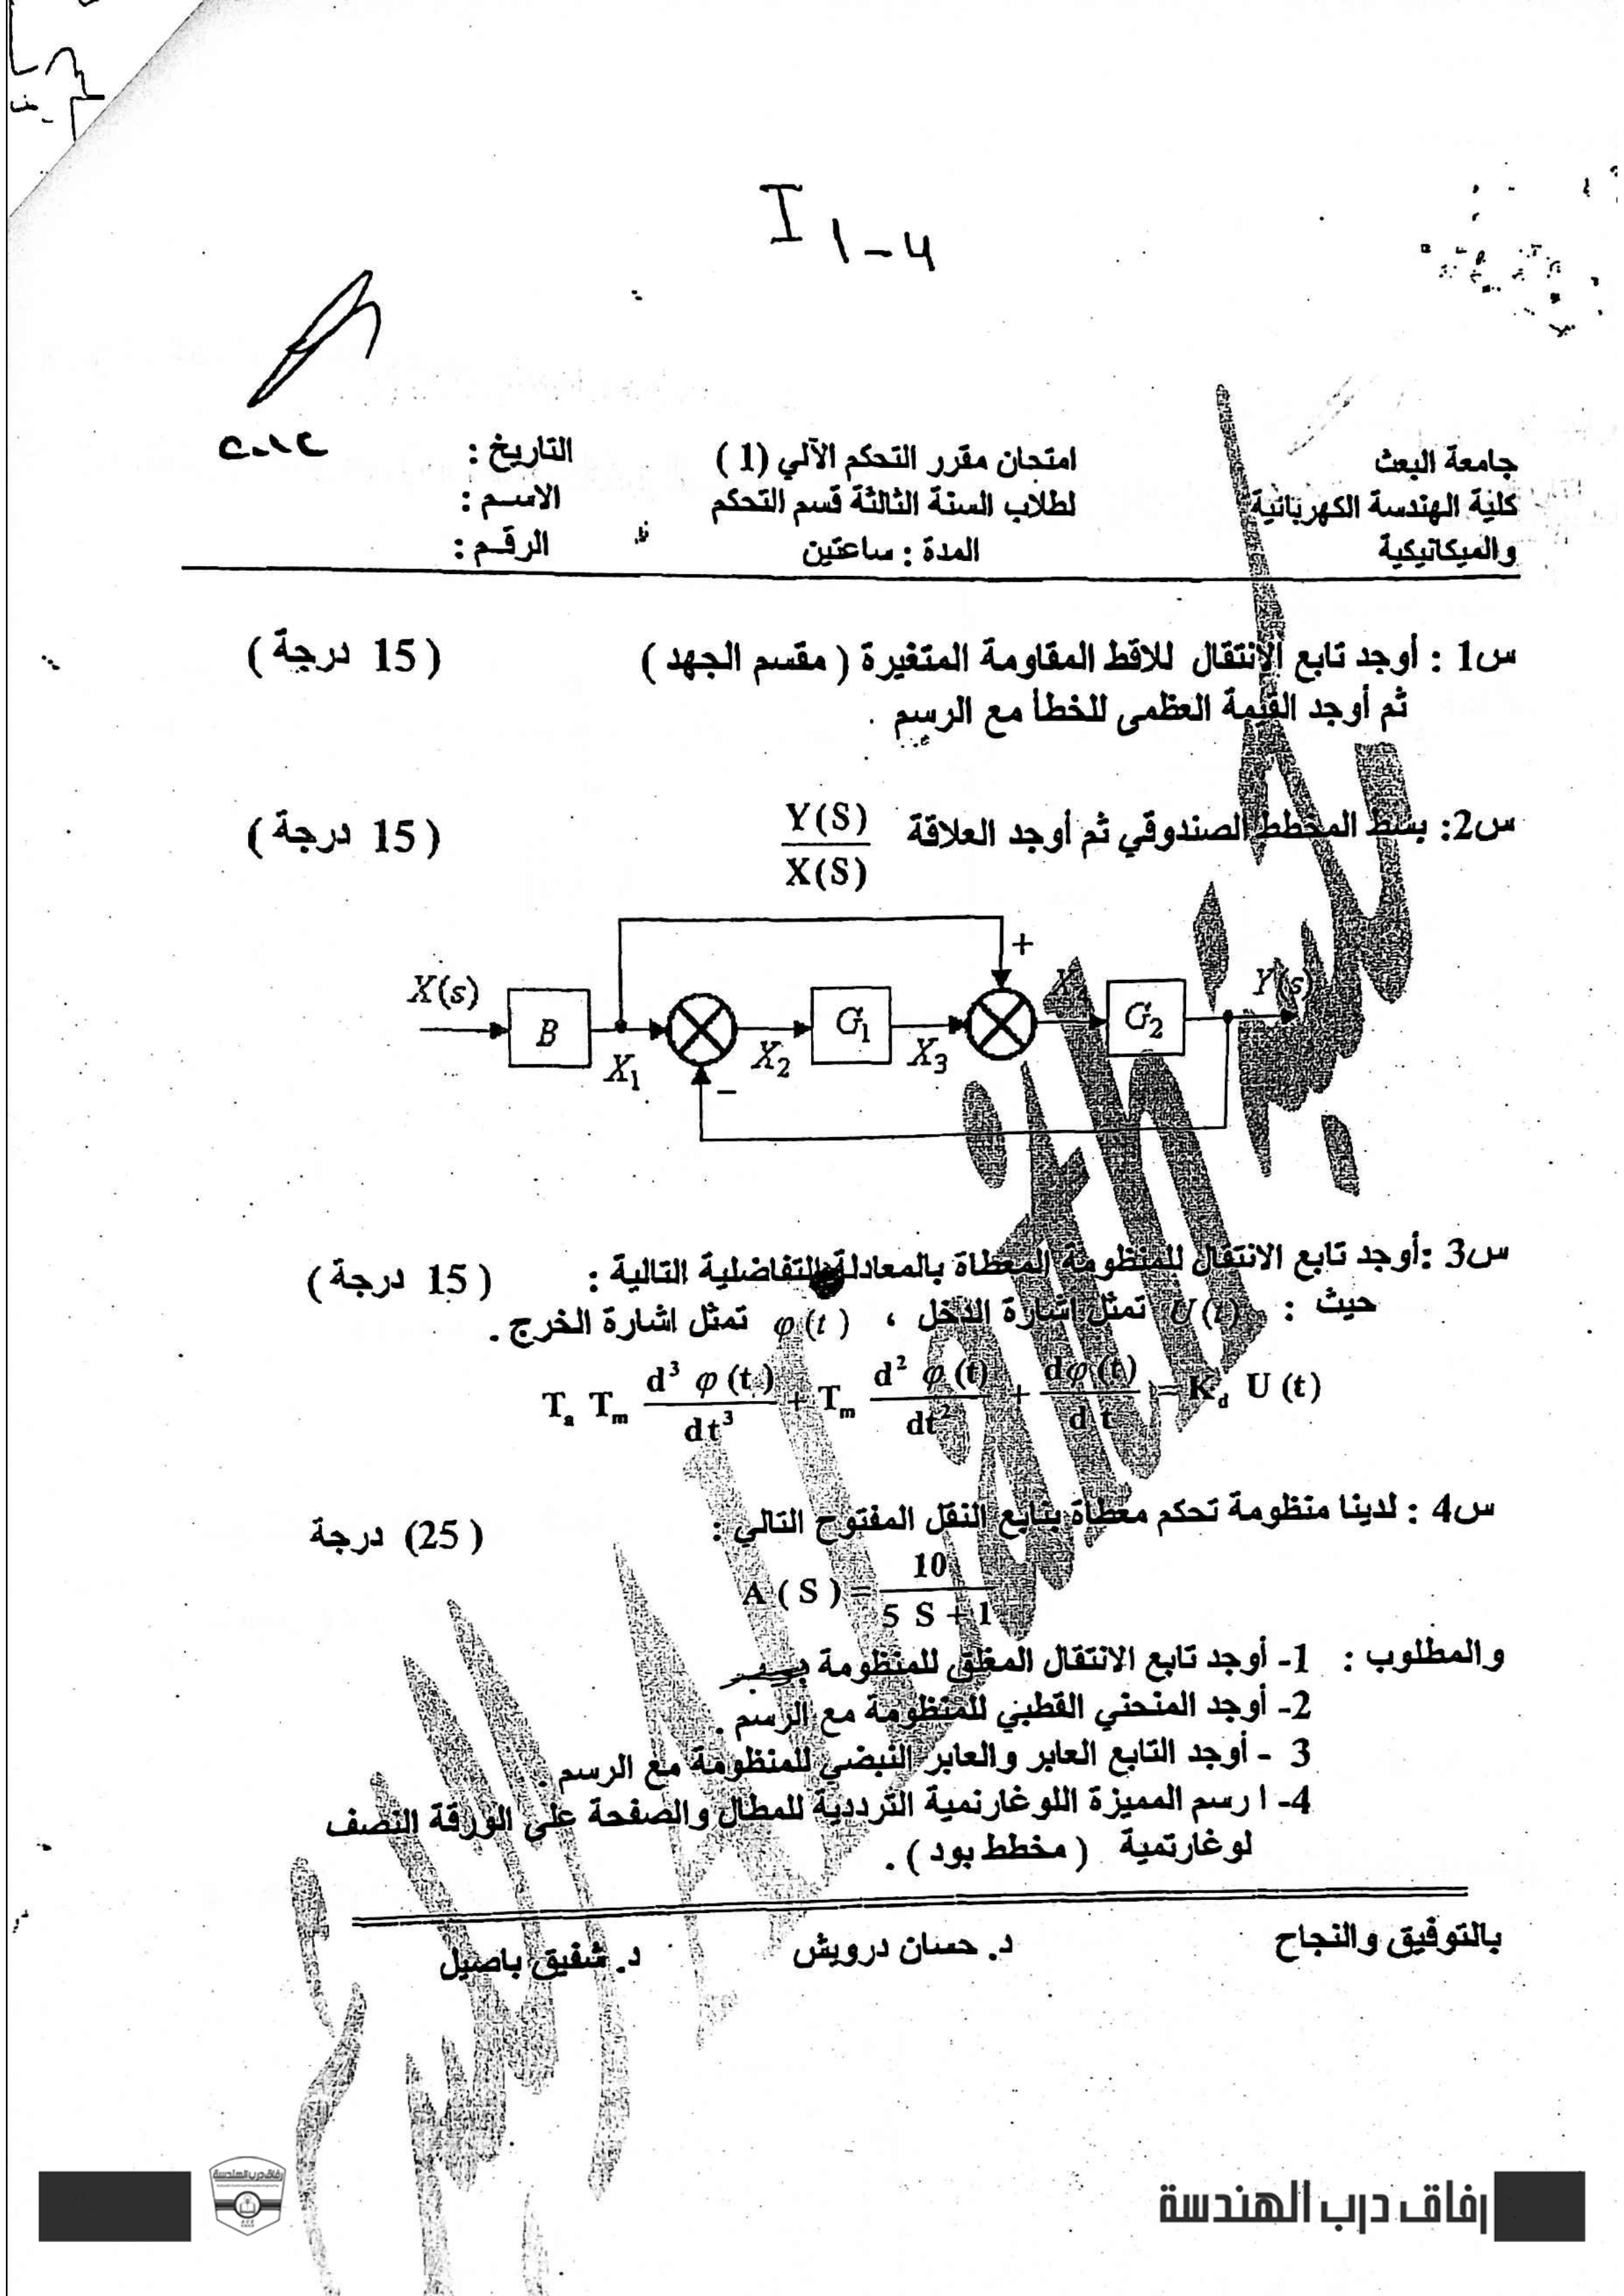 I 1-4
جامعة البعث
امتحان مقرر التحكم الآلي (1)
التاريخ : ٢٠١٢
كلية الهندسة الكهربائية
لطلاب السنة الثالثة قسم التحكم
الاسم :
والميكانيكية
المدة : ساعتين
الرقم :
س1 : أوجد تابع الانتقال للاقط المقاومة المتغيرة ( مقسم الجهد ) ( 15 درجة )
ثم أوجد القيمة العظمى للخطأ مع الرسم .
س2: بسط المخطط الصندوقي ثم أوجد العلاقة Y(S) / X(S) ( 15 درجة )
X(s) B X1 X2 G1 X3 + X G2 Y(s)
−
س3 :أوجد تابع الانتقال للمنظومة المعطاة بالمعادلة التفاضلية التالية : ( 15 درجة )
حيث : U(t) تمثل اشارة الدخل ، φ(t) تمثل اشارة الخرج .
Ta Tm d³ φ(t) / dt³ + Tm d² φ(t) / dt² + dφ(t) / dt = Kd U(t)
س4 : لدينا منظومة تحكم معطاة بتابع النقل المفتوح التالي : (25) درجة
A ( S ) = 10 / 5 S + 1
والمطلوب : 1- أوجد تابع الانتقال المغلق للمنظومة
2- أوجد المنحني القطبي للمنظومة مع الرسم .
3 - أوجد التابع العابر والعابر النبضي للمنظومة مع الرسم .
4- ا رسم المميزة اللوغارتمية الترددية للمطال والصفحة على الورقة النصف
لوغارتمية ( مخطط بود ) .
بالتوفيق والنجاح
د. حسان درويش
د. شفيق باصيل
رفاق درب الهندسة